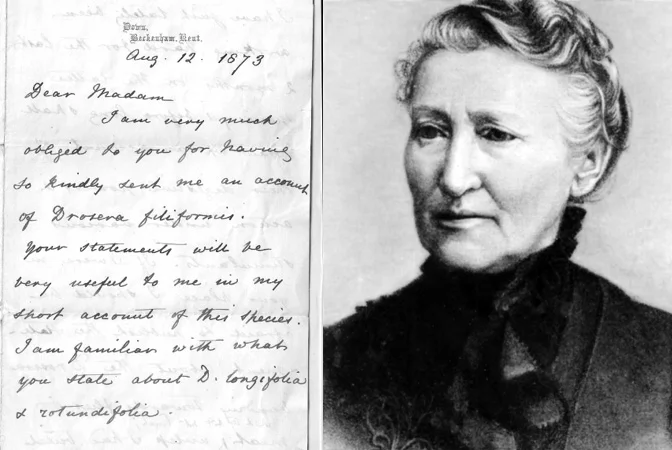 Down,
Beckenham, Kent.
Aug. 12. 1873
Dear Madam
I am very much
obliged to you for having
so kindly sent me an account
of Drosera filiformis.
Your statements will be
very useful to me in my
short account of this species.
I am familiar with what
you state about D. longifolia
& rotundifolia.